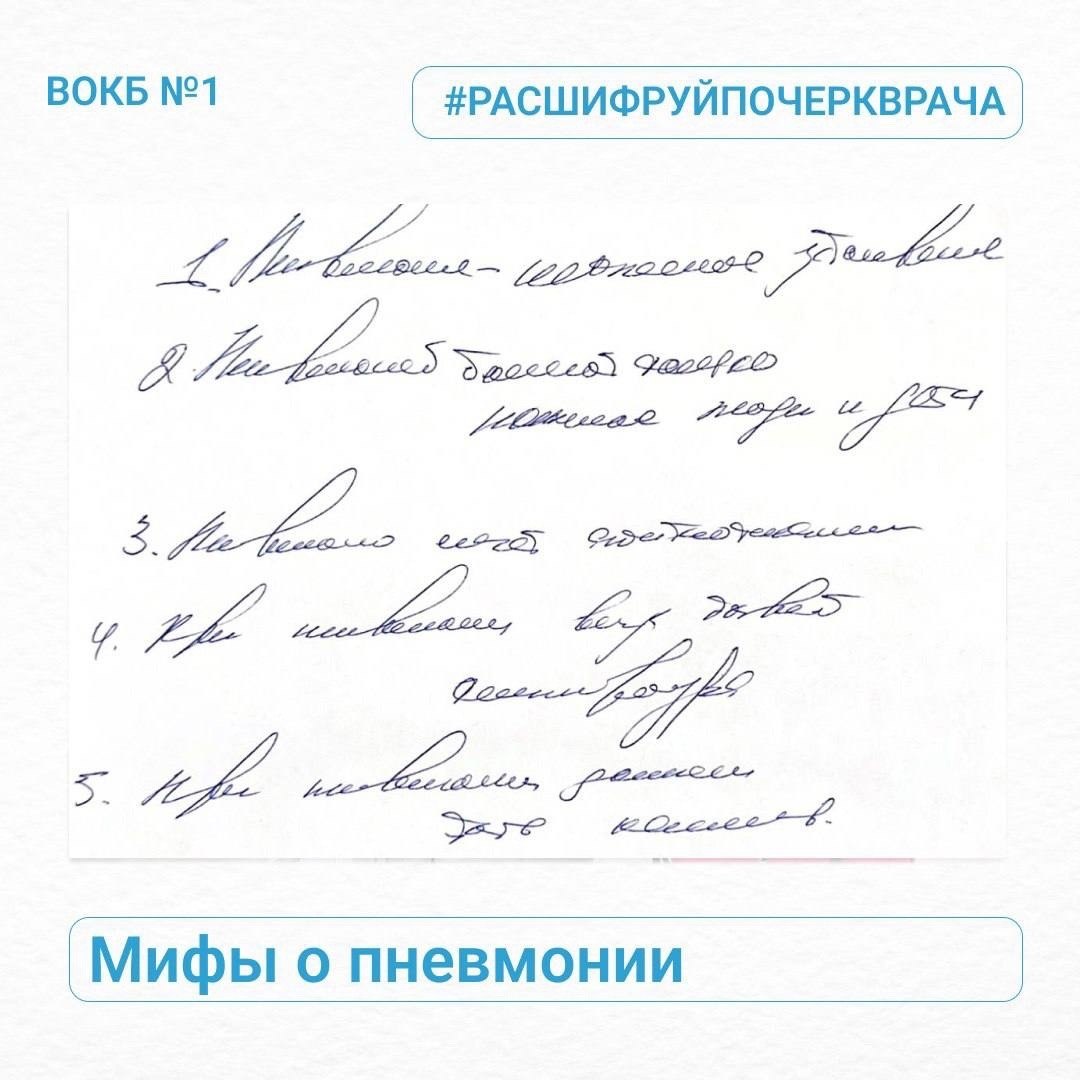 ВОКБ №1
#РАСШИФРУЙПОЧЕРКВРАЧА
1. Пневмония - заболевание
2. Пневмонией болеют только
пожилые люди и дети
3. Пневмонию лечат антибиотиками
4. При пневмонии всегда бывает
температура
5. При пневмонии должен
быть кашель.
Мифы о пневмонии